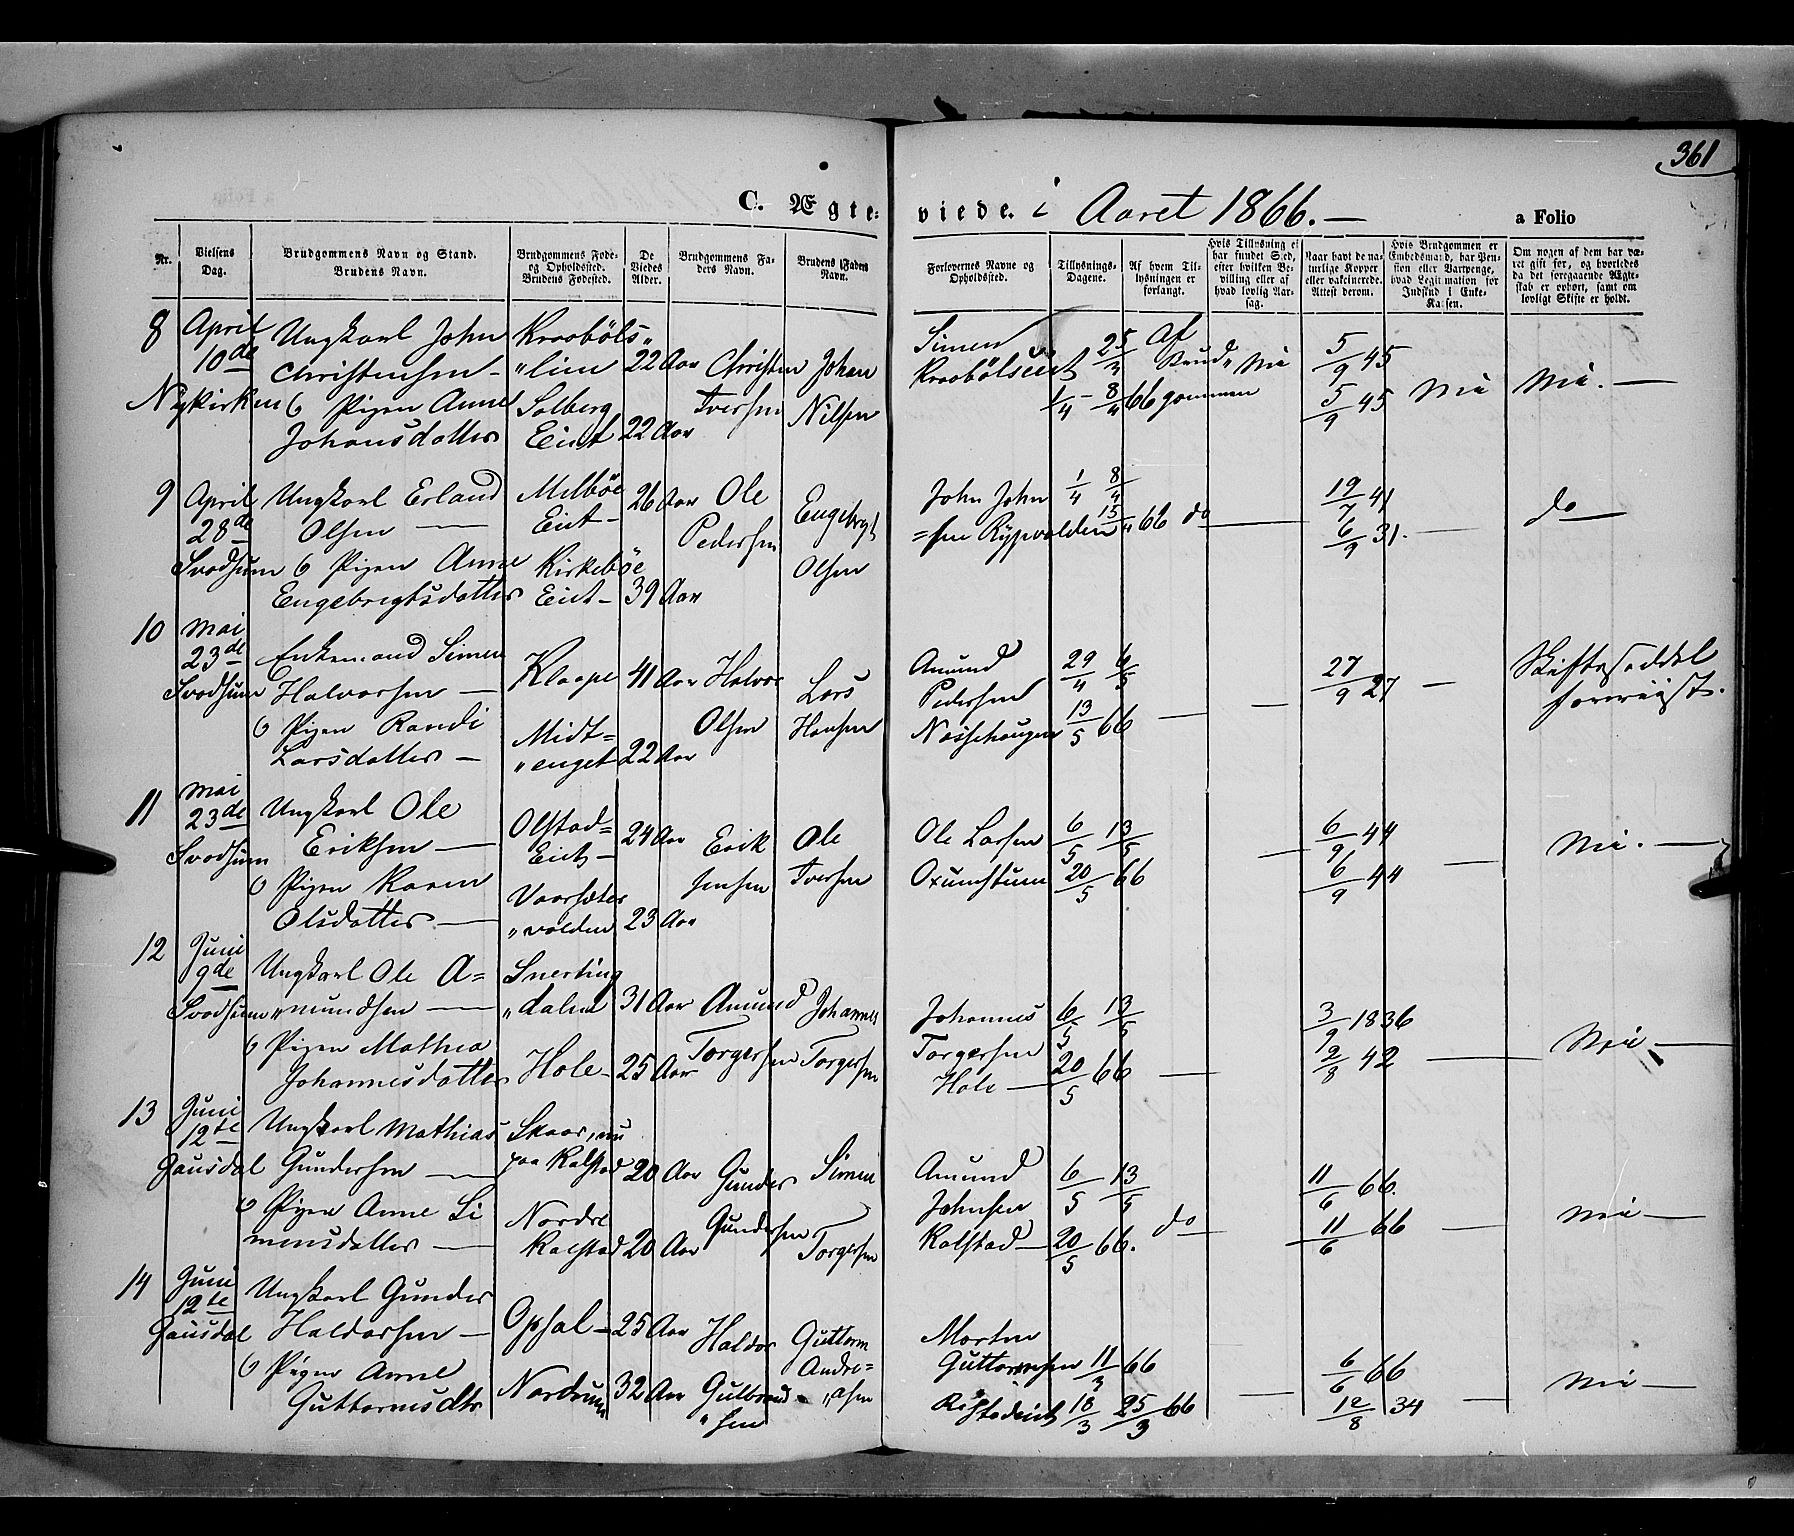 361
C. Ægte-viede. i Aaret 1866. — a Folio
Nr.
Vielsens Dag.
Brudgommens Navn og Stand. Brudens Navn.
Brudgommens Føde- og Opholdssted. Brudens Fødested.
De Viedes Alder.
Brudgommens Faders Navn.
Brudens Faders Navn.
Forlovernes Navne og Opholdssted.
Tillysnings-Dagene.
Af hvem Tillysningen er forlangt.
Hvis Tillysning ei har fundet Sted, efter hvilken Bevilling eller af hvad lovlig Aarsag.
Naar havt de naturlige Kopper eller vakcinerede. Attest derom.
Hvis Brudgommen er Embedsmand, har Pension eller Vartpenge, hvad Legitimation for Indskud i Enke-Kassen.
Om nogen af dem har været gift før, og hvorledes da det foregaaende Ægteskab er ophørt, samt om lovligt Skifte er holdt.
8 April Ungkarl John Kraabøls„ Simen 25/3 Af
10de Christensen — „lien 22 Aar Christen Johan Kraabølseiet Brud„ Nei 5/9 45
Nykirken & Pigen Anne Solberg Iversen Nilsen 1/4 – 8/4 66 gommen 5/9 45 Nei Nei. —
Johansdatter Eiet 22 Aar
9 April Ungkarl Erland Melbøe 26 Aar Ole Engebrigt John John 1/4 8/4 19/7 41 do
28de Olsen — Eiet — Pedersen =sen Rypvolden 15/4 66 do — 6/9 31. —
Svodsum & Pigen Anne Kirkebøe Olsen
Engebregtsdatter Eiet — 39 Aar
10 Mai
23de Enkemand Simen Klaape 41 Aar Halvor Lars Amund 29/4 6/5 27/9 27 — Skifteseddel
Svodsum Halvorsen — Pedersen foreviist.
& Pigen Randi Midt= Olsen Hansen Nossehaugen 13/5 66 — —
Larsdatter — „enget 22 Aar
11 Mai
23de Ungkarl Ole Olstad= 24 Aar Erik Ole Ole Larsen 6/5 13/5 6/9 44 Nei. —
Svodsum Eriksen — Eiet — —
& Pigen Karen Vaarsæter Jensen Iversen Oxumstuen 20/5 66 6/9 44
Olsdatter — „volden 23 Aar
12 Juni
9de Ungkarl Ole A= Snerting
Svodsum „mundsen — „dalen 31 Aar Amund Johannes Johannes 6/5 13/5 3/9 1836
& Pigen Mathea Hole — 25 Aar Torgersen Torgersen Torgersen 2/8 42 — Nei —
Johannesdatter Hole — 20/5 66 —
13 Juni
12te Ungkarl Mathias Skaar, nu
Gausdal Gundersen — paa Kalstad 20 Aar Gunder Simen Amund 6/5 13/5 11/6 66.
& Pigen Anne Si Nordre Gundersen Torgersen Johnsen do
mensdatter — Kalstad 20 Aar Kalstad — 20/5 66. 11/6 66 — Nei —
14 Juni
12te Ungkarl Gunder Opsal — 25 Aar Haldor Guttorm Morten
Gausdal Haldorsen — Andre= Guttormsen 11/3 66 6/6 66
& Pigen Anne Nordrum 32 Aar Gulbrand „sen 18/3 25/3 66 — Nei —
Guttormsdtr „sen 12/8 34